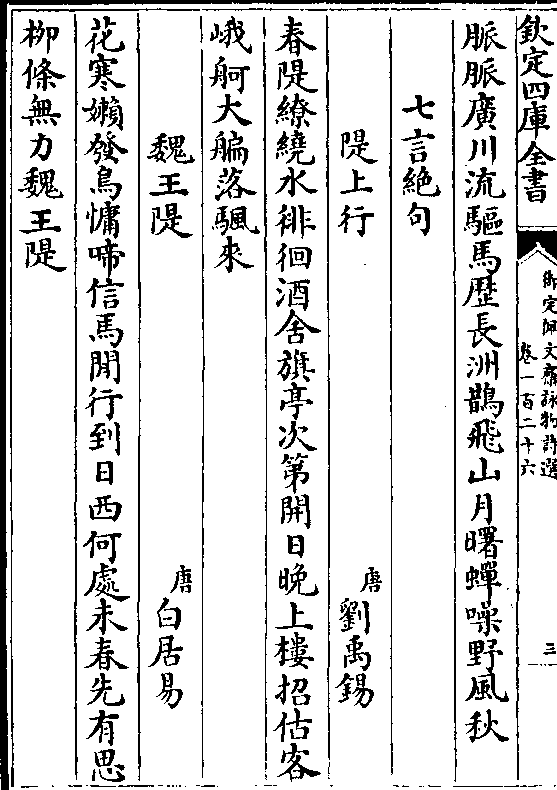 欽定四庫全書
御定佩文齋詠物詩選
卷一百二十六
三
脈脈廣川流驅馬歴長洲鵲飛山月曙蟬噪野風秋
七言絶句
隄上行
唐劉禹錫
春隄繚繞水徘徊酒舍旗亭次第開日晚上樓招估客
峨舸大艑落颿來
魏王隄
唐白居易
花寒嬾發鳥慵啼信馬閒行到日西何處未春先有思
柳條無力魏王隄